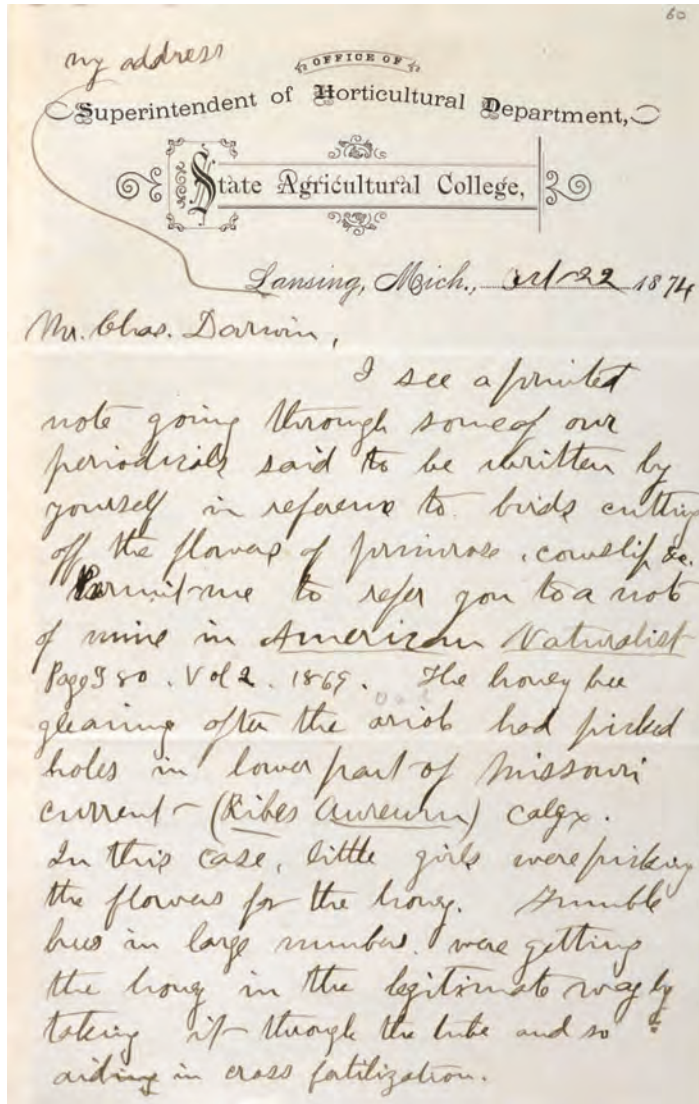 60
my address
OFFICE OF
Superintendent of Horticultural Department,
State Agricultural College,
Lansing, Mich., 22 1874
Mr. Chas. Darwin,
I see a printed
note going through some of our
periodicals said to be written by
yourself in reference to birds cutting
off the flowers of primrose, cowslip &c.
Permit me to refer you to a not
of mine in American Naturalist
Page 380. Vol 2. 1869. The honey bee
gleaning after the oriole had picked
holes in lower part of Missouri
current (Ribes Aureum) calyx.
In this case, little girls were picking
the flowers for the honey. Humble
bees in large numbers were getting
the honey in the legitimate way by
taking it through the tube and so
aiding in cross fertilization.